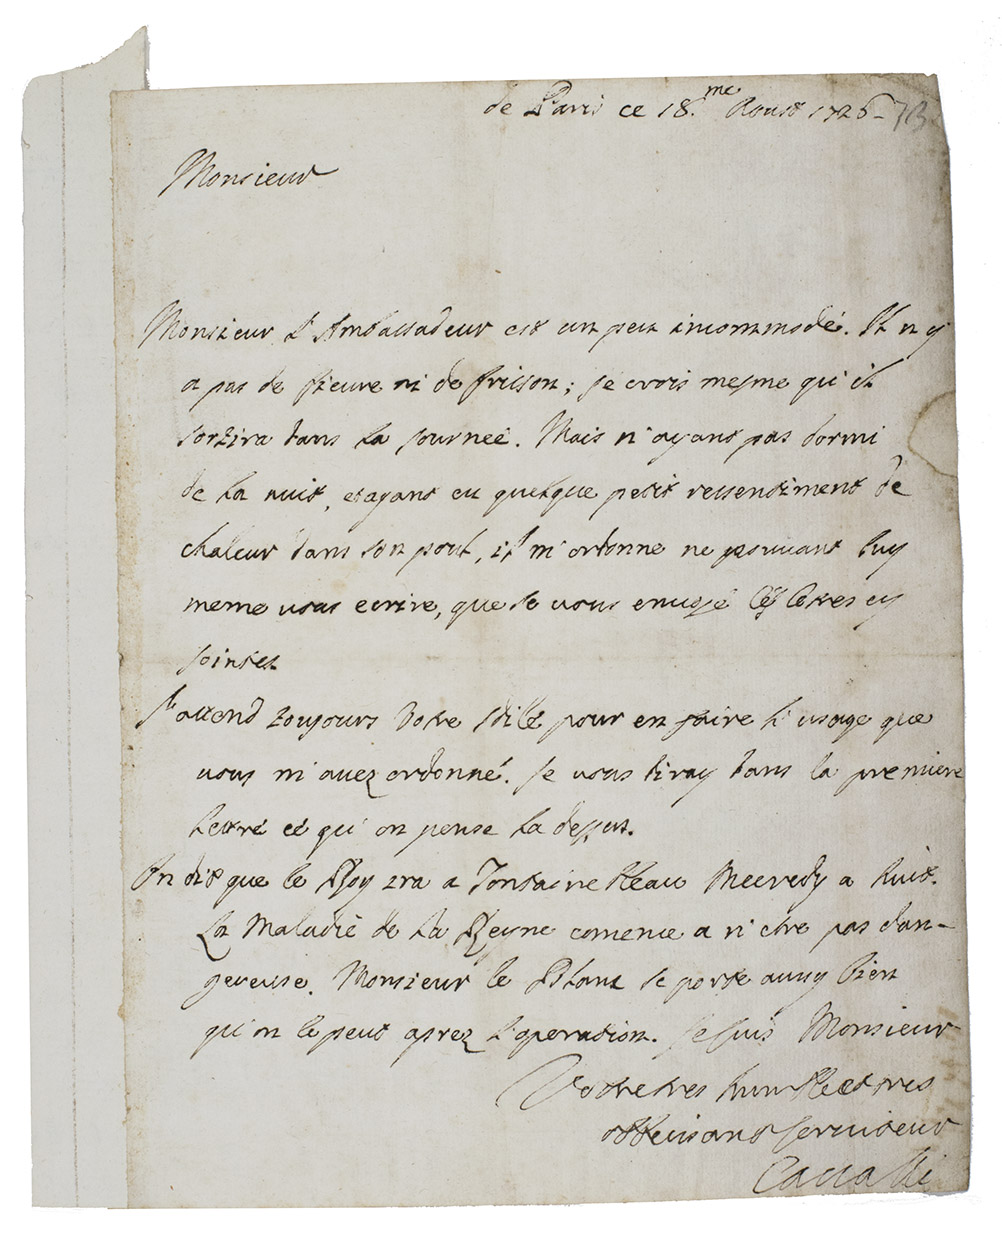 de Paris ce 18.me Aoust 1726 -
Monsieur
Monsieur L'Ambassadeur est un peu incommodé. Il n'y
a pas de fievre ni de frisson; je crois mesme qu'il
sortira dans la journeé. Mais n'ayant pas dormi
de la nuit, et ayant eu quelque petit ressentiment de
chaleur dans son pout, il m'ordonne ne pouvant luy
meme vous ecrire, que je vous envoye les lettres cy
jointes
J'attend toujours votre pour en faire l'usage que
vous m'avez ordonné. Je vous diray dans la premiere
lettre ce qu'on pense la dessus.
On dit que le Roy ira a Fontainebleau Mecredy a huit.
La Maladie de la Reyne comence a n'etre pas dan-
gereuse. Monsieur le Blanc se porte aussy bien
qu'on le peut aprez l'operation. Je suis Monsieur
Votre tres humble et tres
obbeissant serviteur